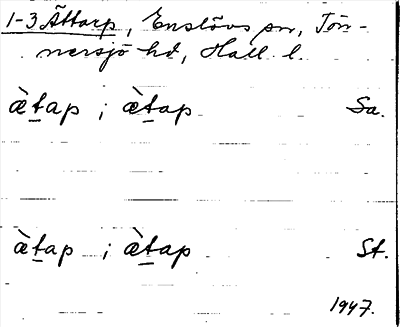 1-3 Ättarp, Enslövs sn, Tön-
nersjö hd, Hall. l.
æ̀ṯap ; æ̀ṯap Sa.
æ̀ṯap ; æ̀ṯap St.
1947.